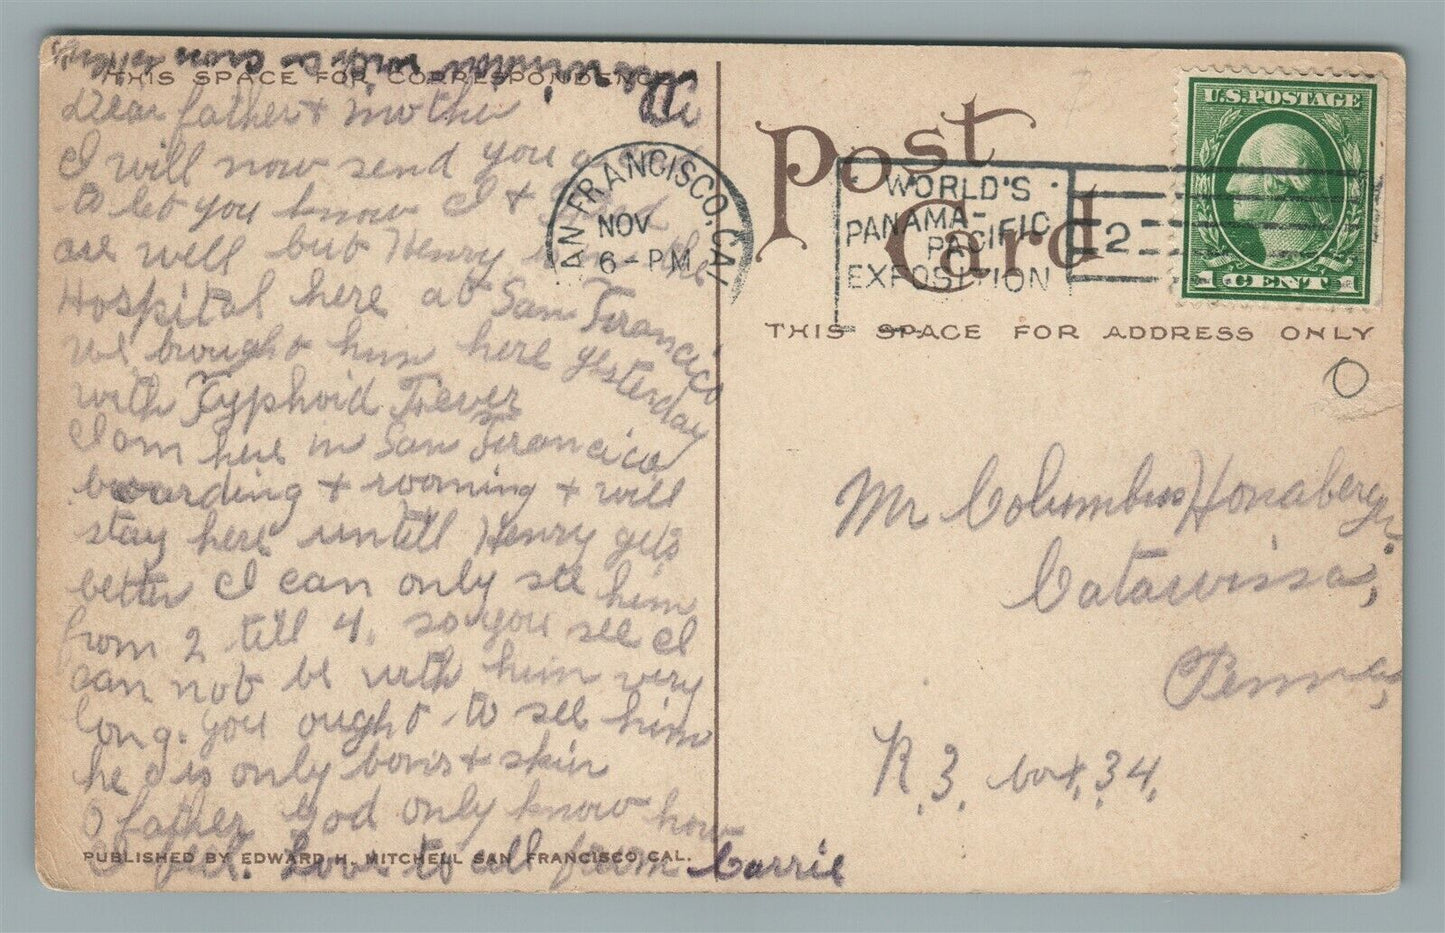 THIS SPACE FOR CORRESPONDENCE
Dear father + mother
I will now send you a
to let you know I +
are well but Henry is in the
Hospital here at San Francisco
we brought him here yesterday
with Typhoid Fever
I am here in San Francisco
boarding + rooming + will
stay here untill Henry gets
better I can only see him
from 2 till 4. so you see I
can not be with him very
long. you ought to see him
he is only bones + skin
O father God only know how
I feel. Love to all from Carrie
PUBLISHED BY EDWARD H. MITCHELL SAN FRANCISCO, CAL.
Post Card
SAN FRANCISCO, CAL
NOV
6-PM
WORLD'S
PANAMA-
PACIFIC
EXPOSITION
2
U.S.POSTAGE
1 CENT 1
THIS SPACE FOR ADDRESS ONLY
Mr Columbus Honabergr.
Catawissa,
Penna,
R. 3. box. 34.